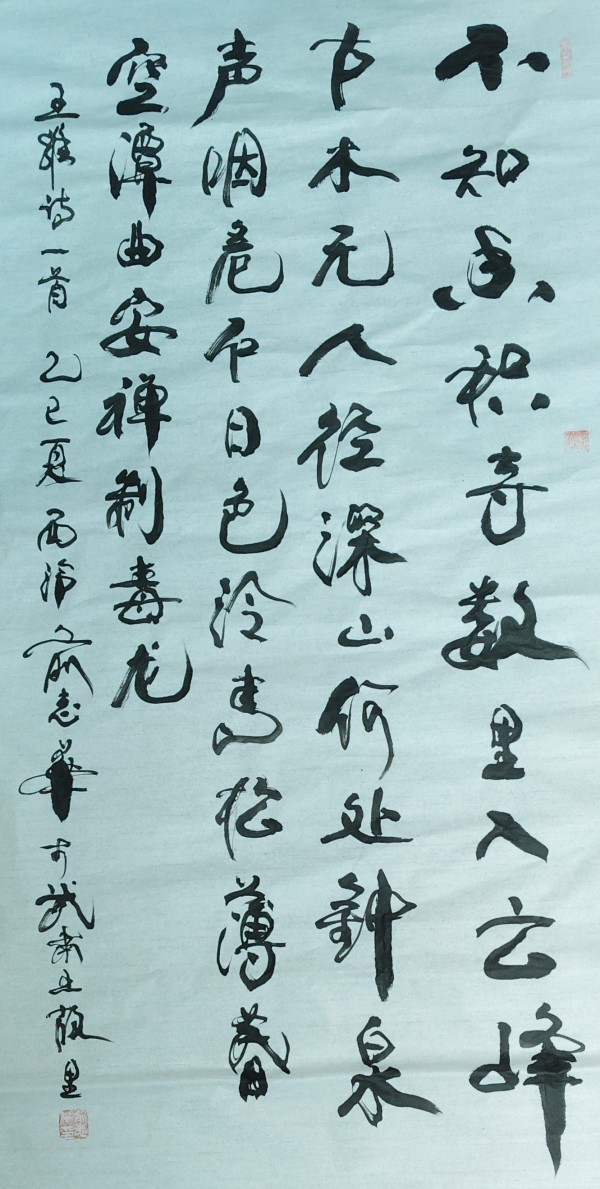 不知香积寺数里入云峰
古木无人径深山何处钟泉
声咽危石日色冷青松薄暮
空潭曲安禅制毒龙
王维诗一首 乙巳夏 西 俞志华 于武 里